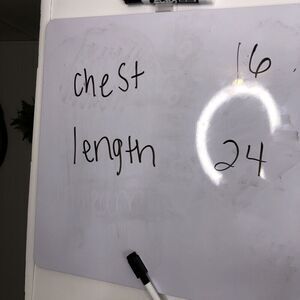 chest 16
length 24